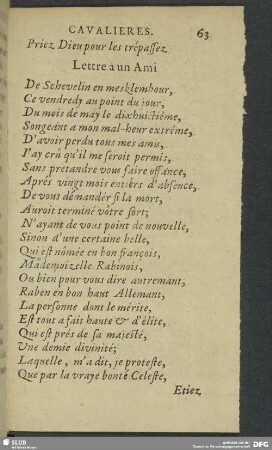 CAVALIERES. 63
Priez Dieu pour les trépassez
Lettre a un Ami
De Schevelin en mesklemhour,
Ce vendredy au point du jour,
Du mois de may le dixhuictiéme,
Songeant a mon mal-heur extréme,
D'avoir perdu tous mes amis,
J'ay crû qu'il me seroit permis,
Sans pretandre vous faire offance,
Aprés vingt mois entiers d'absence,
De vous demandér si la mort,
Auroit terminé vôtre sort;
N'ayant de vous point de nouvelle,
Sinon d'une certaine belle,
Qui est nômée en bon françois,
Mademoizelle Rabinois,
Ou bien pour vous dire autremant,
Raben en bon haut Allemant,
La personne dont le mérite,
Est tout a fait haute & d'élite,
Qui est prés de sa majesté,
Une demie divinité;
Laquelle, m'a dit, je proteste,
Que par la vraye bonté Celeste,
Etiez
SLUB
DFG